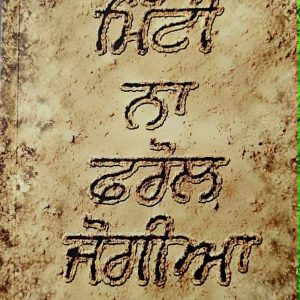 ਮਿੱਟੀ
ਨਾ
ਫਰੋਲ
ਜੋਗੀਆ